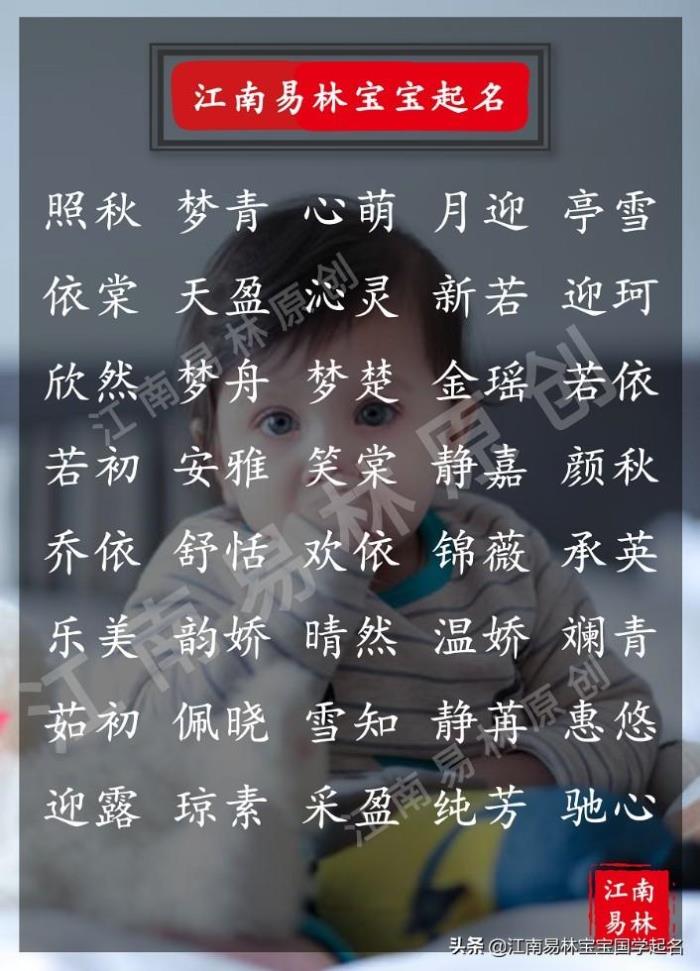 江南易林宝宝起名
照秋 梦青 心萌 月迎 亭雪
依棠 天盈 沁灵 新若 迎珂
欣然 梦舟 梦楚 金瑶 若依
若初 安雅 笑棠 静嘉 颜秋
乔依 舒恬 欢依 锦薇 承英
乐美 韵娇 晴然 温娇 斓青
茹初 佩晓 雪知 静苒 惠悠
迎露 琼素 采盈 纯芳 驰心
江南易林原创
江南易林原创
江南易林原创
江南
易林
头条 @江南易林宝宝国学起名